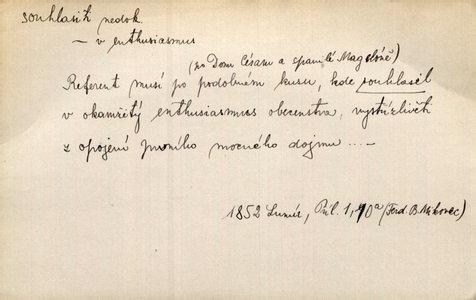 souhlasiti nedok.
– v enthusiasmus
(po Donu Césaru a spanilé Magelóně)
Referent musí po podobném kusu, kde souhlasil
v okamžitý enthusiasmus obecenstva, vystřízlivěti
z opojení prvního mocného dojmu ... –
1852 Lumír, Půl. 1, 70a (Ferd. B. Mikovec)